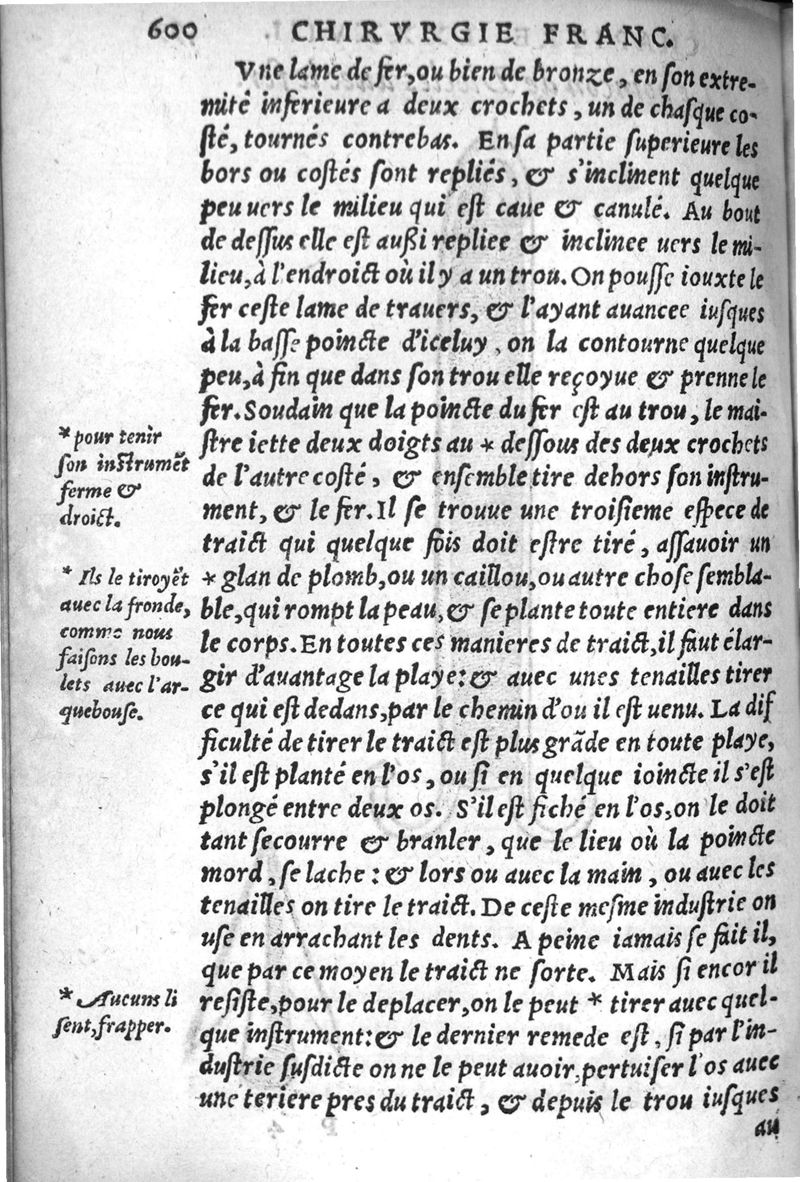 600 CHIRVRGIE FRANC.
Vne lame de fer, ou bien de bronze, en son extre-
mité inferieure a deux crochets, un de chasque co-
sté, tournés contrebas. En sa partie superieure les
bors ou costés sont repliés, & s'inclinent quelque
peu uers le milieu qui est caue & canulé. Au bout
de dessus elle est aussi repliee & inclinee uers le mi-
lieu, à l'endroict où il y a un trou. On pousse iouxte le
fer ceste lame de trauers, & l'ayant auancee iusques
à la basse poincte d'iceluy, on la contourne quelque
peu, à fin que dans son trou elle reçoyue & prenne le
fer. Soudain que la poincte du fer est au trou, le mai-
stre iette deux doigts au * dessous des deux crochets
de l'autre costé, & ensemble tire dehors son instru-
ment, & le fer. Il se trouue une troisieme espece de
traict qui quelque fois doit estre tiré, assauoir un
* glan de plomb, ou un caillou, ou autre chose sembla-
ble, qui rompt la peau, & se plante toute entiere dans
le corps. En toutes ces manieres de traict, il faut élar-
gir d'auantage la playe: & auec unes tenailles tirer
ce qui est dedans, par le chemin d'ou il est uenu. La dif
ficulté de tirer le traict est plus grãde en toute playe,
s'il est planté en l'os, ou si en quelque ioincte il s'est
plongé entre deux os. S'il est fiché en l'os, on le doit
tant secourre & branler, que le lieu où la poincte
mord, se lache: & lors ou auec la main, ou auec les
tenailles on tire le traict. De ceste mesme industrie on
use en arrachant les dents. A peine iamais se fait il,
que par ce moyen le traict ne sorte. Mais si encor il
resiste, pour le deplacer, on le peut * tirer auec quel-
que instrument: & le dernier remede est, si par l'in-
dustrie susdicte on ne le peut auoir, pertuiser l'os auec
une teriere pres du traict, & depuis le trou iusques
au
* pour tenir
son instrumẽt
ferme &
droict.
* Ils le tiroyẽt
auec la fronde,
comme nous
faisons les bou-
lets auec l'ar-
quebouse.
* Aucuns li
sent, frapper.